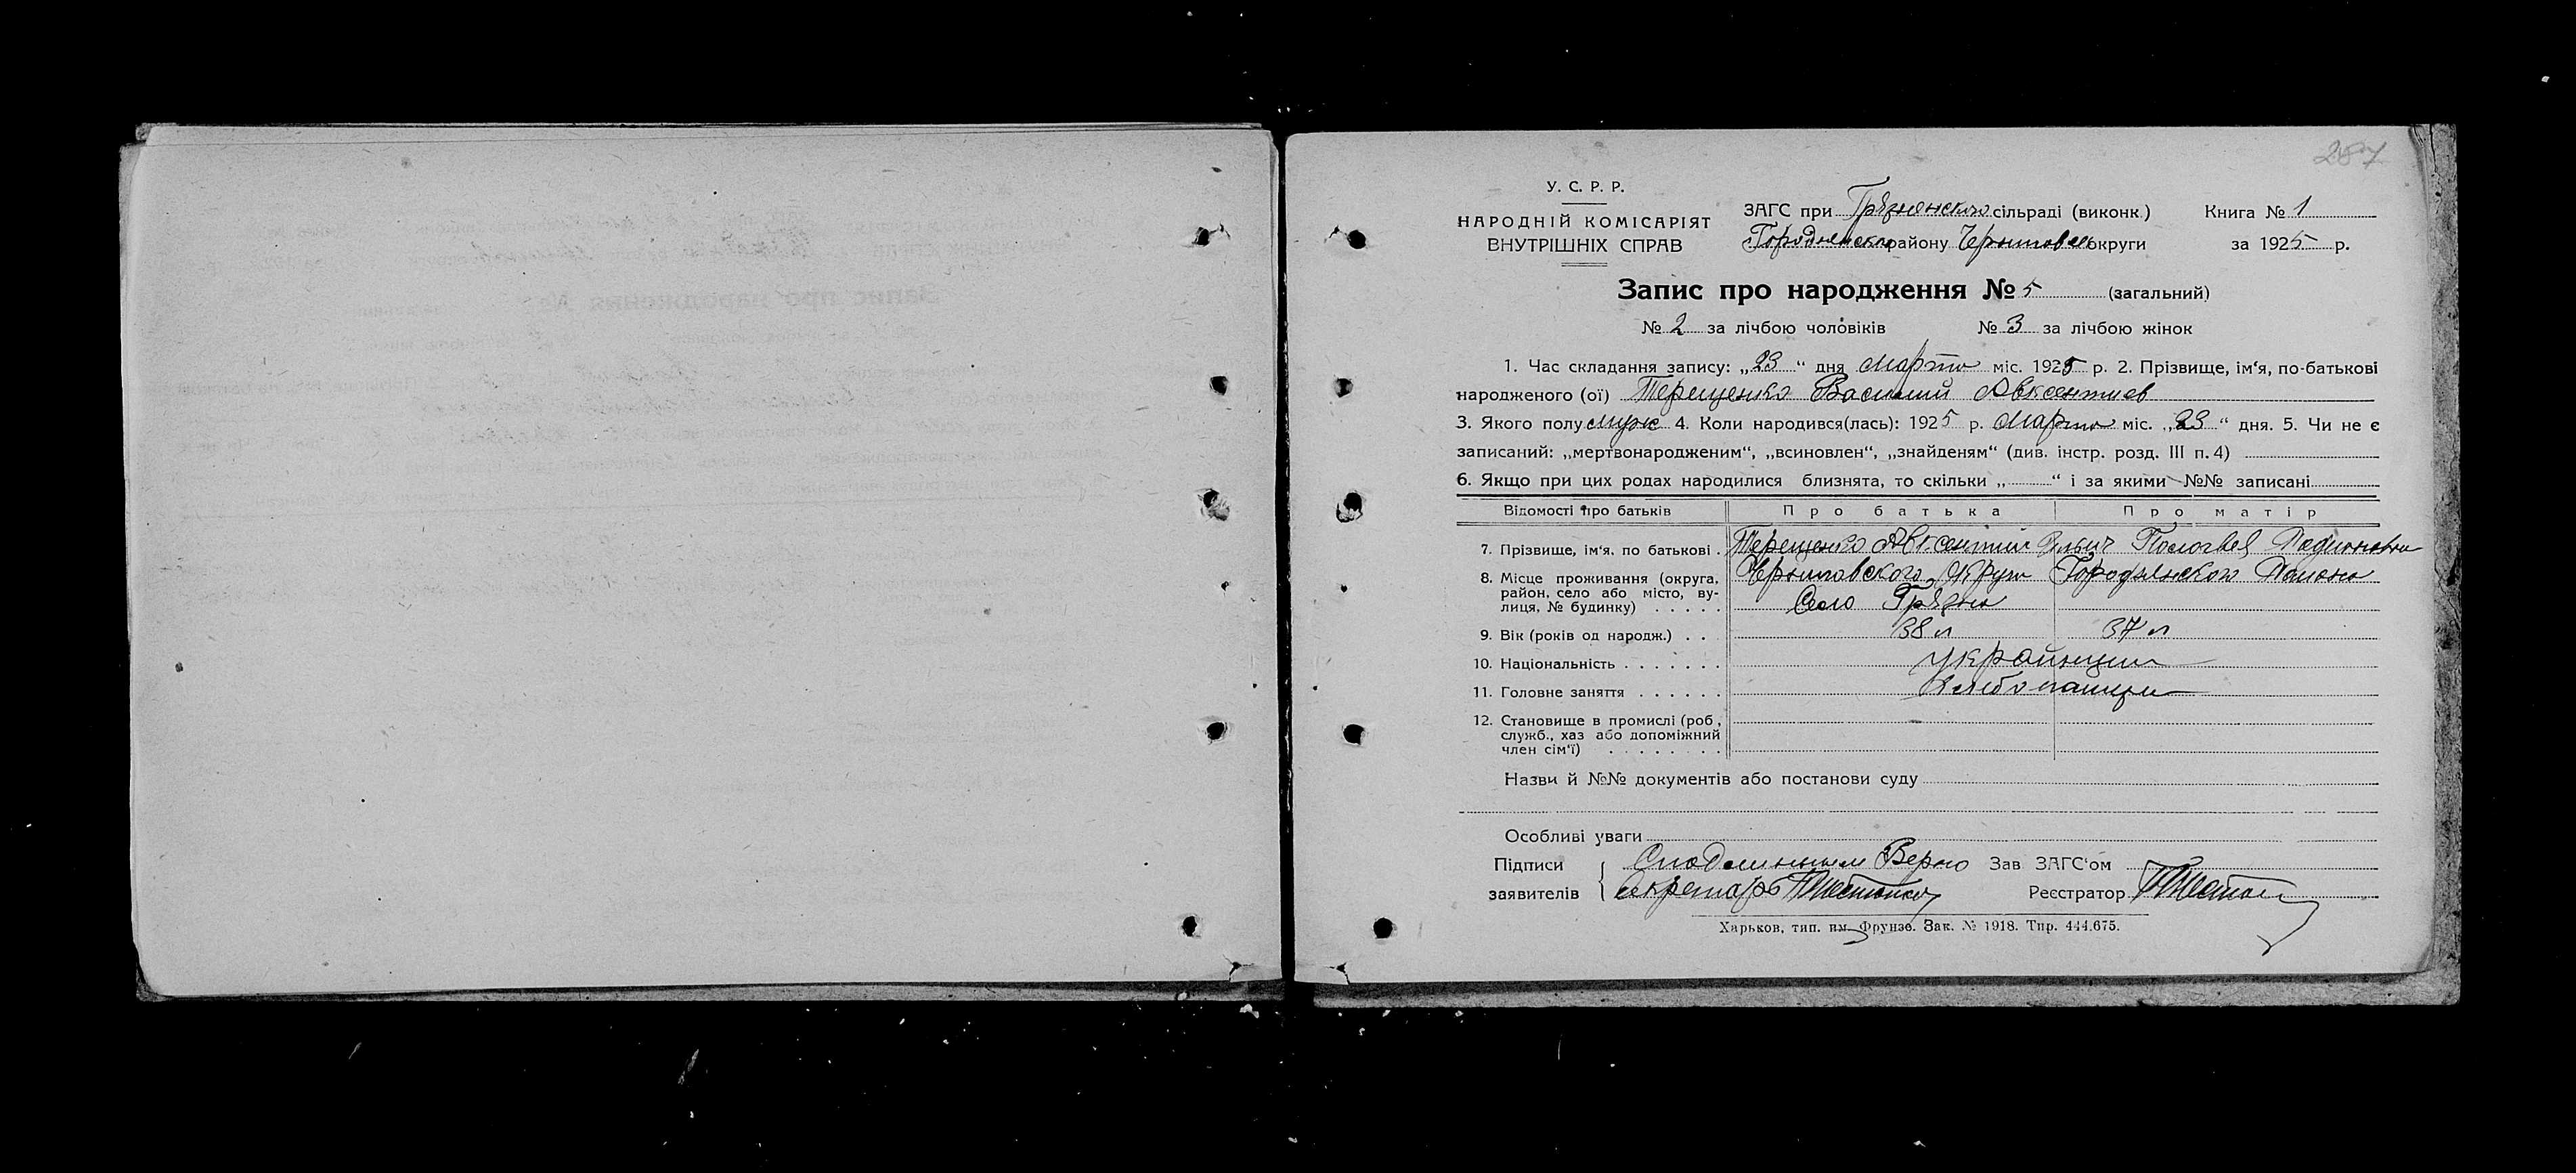 287
У. С. Р. Р.
НАРОДНІЙ КОМІСАРІЯТ
ВНУТРІШНІХ СПРАВ
ЗАГС при Грязнянского сільраді (виконк.) Книга № 1
Городнянского району Черниговской округи за 1925 р.
Запис про народження № 5 (загальний)
№ 2 за лічбою чоловіків № 3 за лічбою жінок
1. Час складання запису: „23“ дня Марта міс. 1925 р. 2. Прізвище, ім'я, по-батькові
народженого (ої) Терещенко Василий Авксентиев
3. Якого полу муж 4. Коли народився(лась): 1925 р. Марта міс. „23“ дня. 5. Чи не є
записаний: „мертвонародженим“, „всиновлен“, „знайденям“ (див. інстр. розд. III п. 4)
6. Якщо при цих родах народилися близнята, то скільки „ “ і за якими №№ записані
Відомості про батьків Про батька Про матір
7. Прізвище, ім'я, по батькові . Терещенко Авксентий
8. Місце проживання (округа, Черниговского Округа Городнянского Района
район, село або місто, ву-
лиця, № будинку) . . . . . Село Грязна
9. Вік (років од народж.) . . 38 л 37 л
10. Національність . . . . . . . украинцы
11. Головне заняття . . . . . . хлебопашцы
12. Становище в промислі (роб.,
служб., хаз або допоміжний
член сім'ї) . . . . . . . .
Назви й №№ документів або постанови суду
Особливі уваги
Підписи С подлинным Верно Зав ЗАГС'ом
заявителів Секретарь Реєстратор
Харьков, тип. им. Фрунзе. Зак. № 1918. Тир. 444.675.